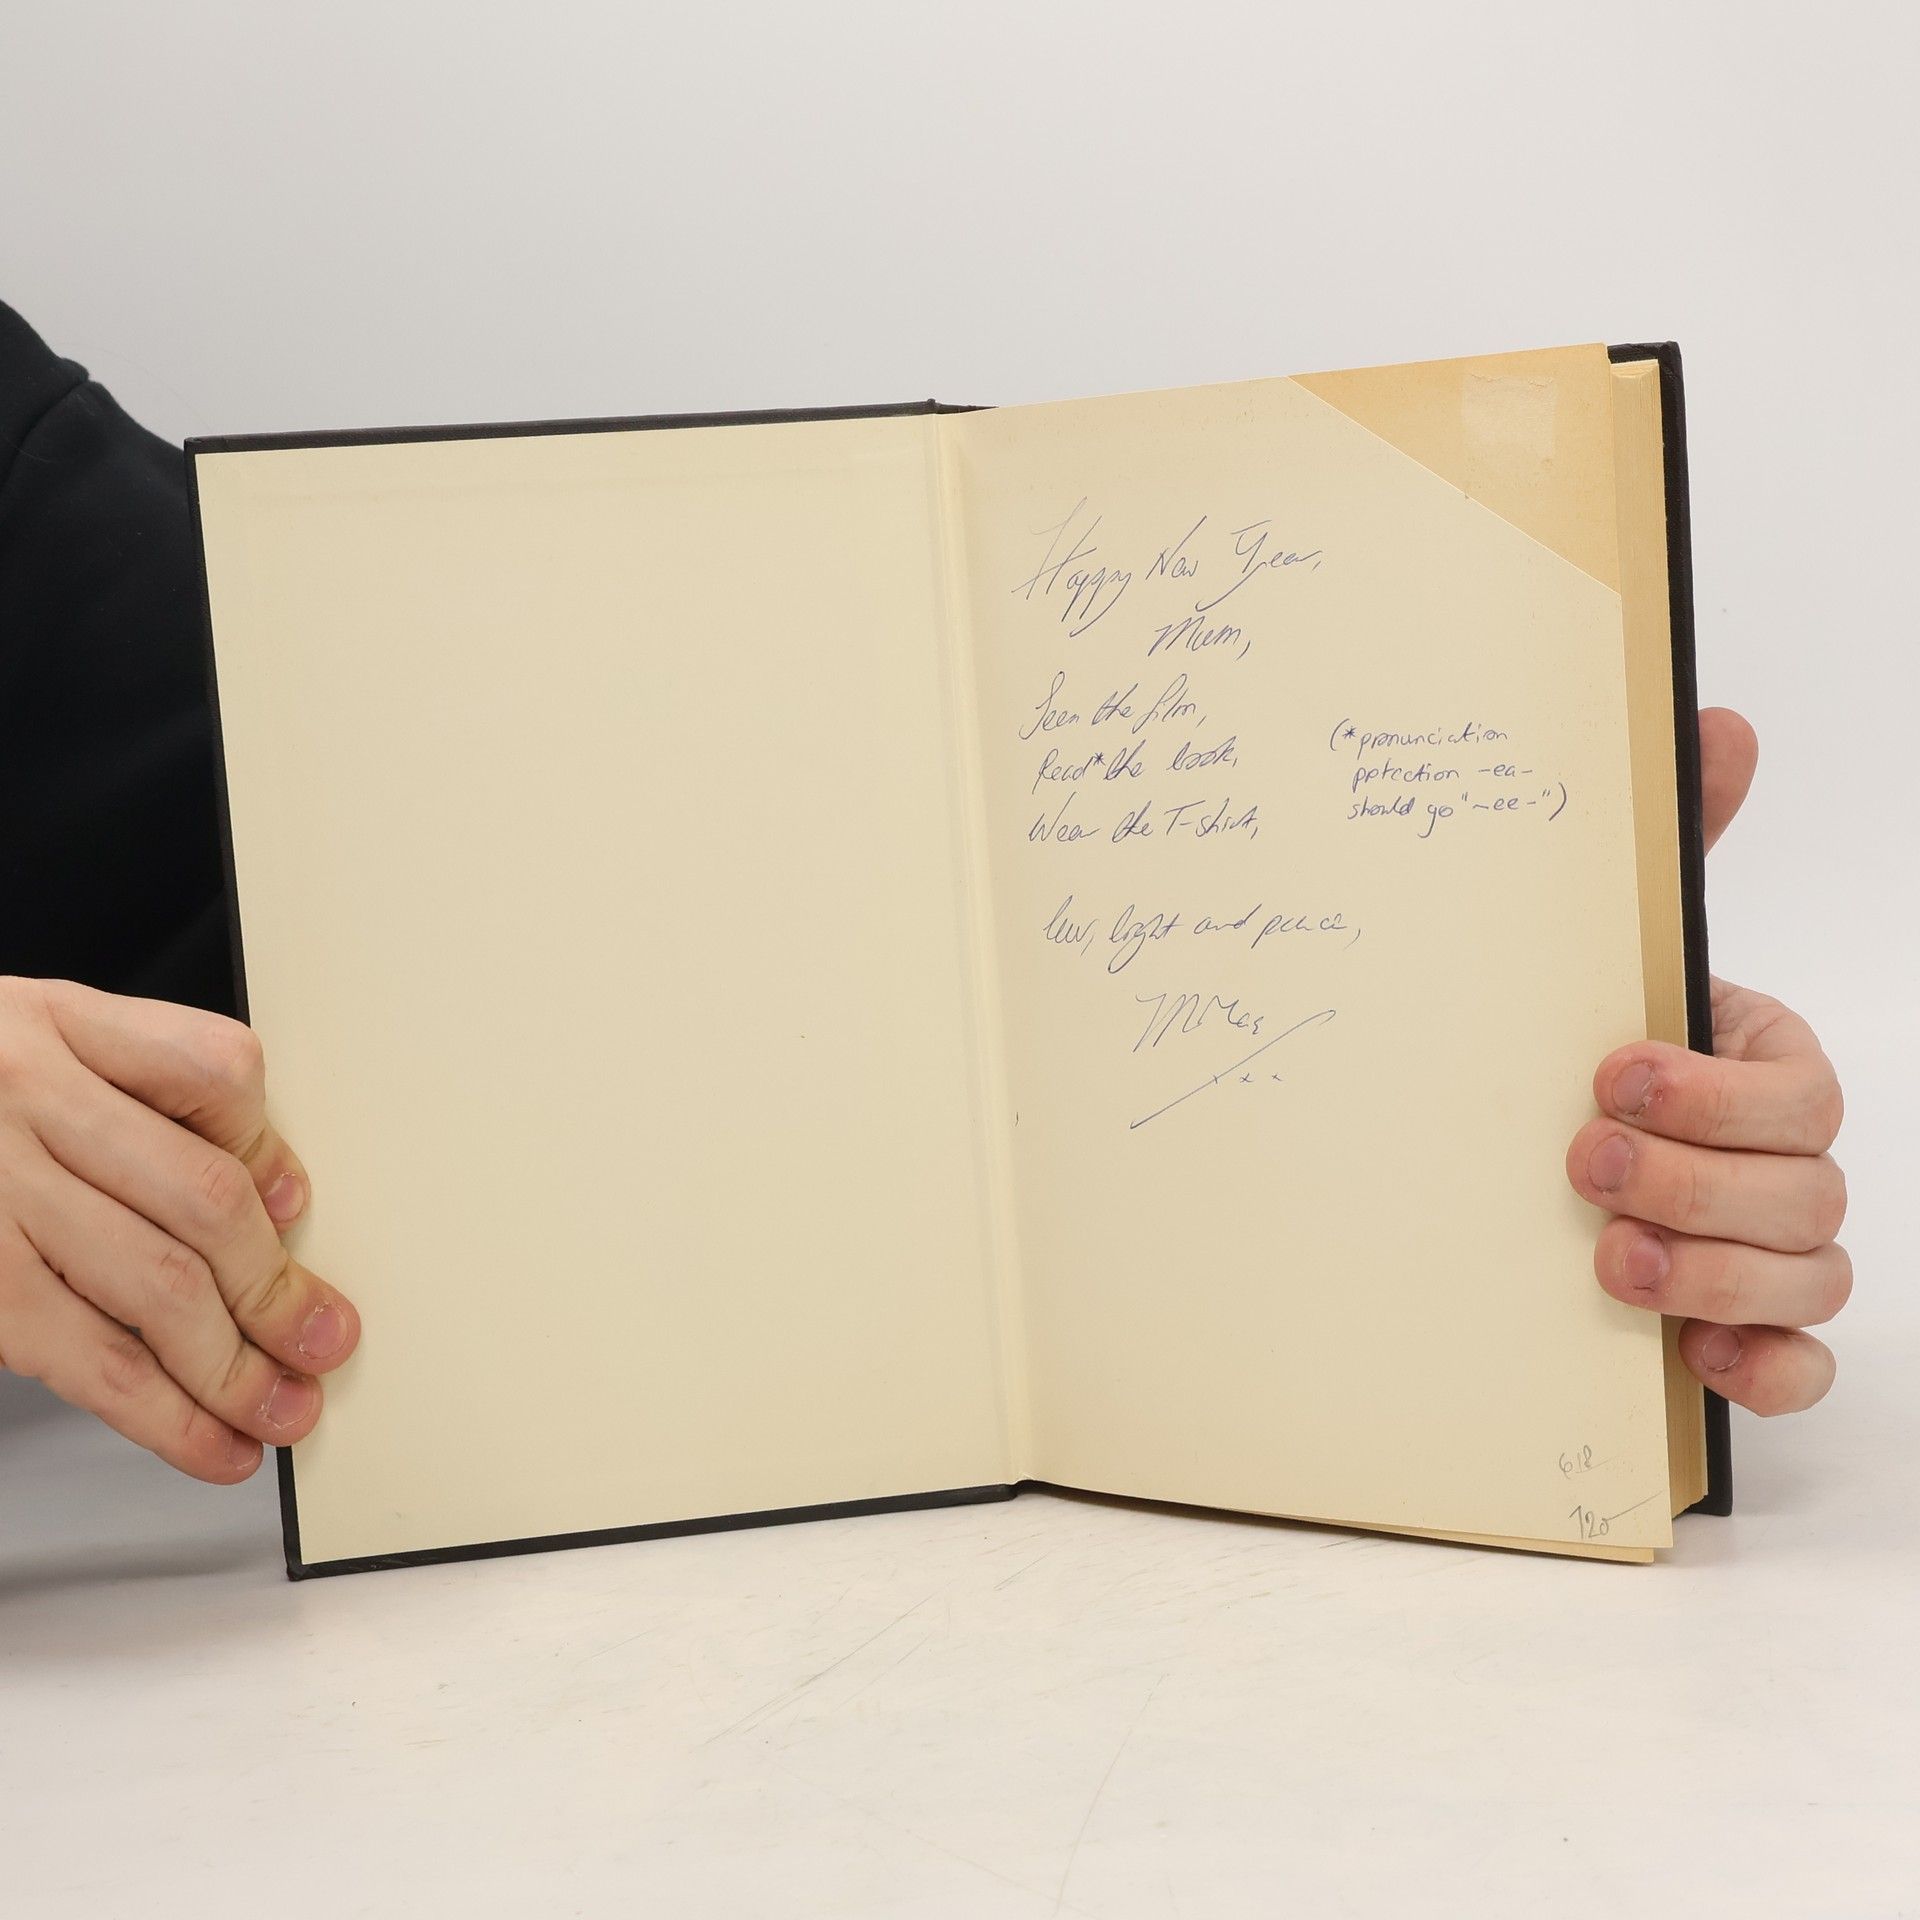 Happy New Year,
Mum,
Seen the film,
Read* the book,
Wear the T-shirt,
(*pronunciation
-ea-
should go "-ee-")
luv, light and peace,
x x x
618
120